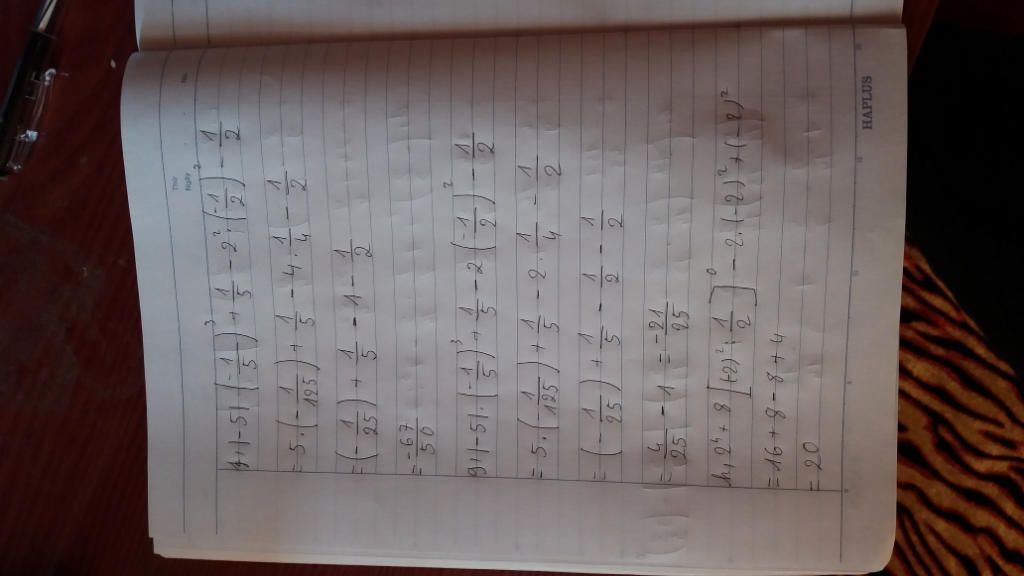 Thứ
Ngày
No.
g, |-5| (-1/5)³ + 1/5 - 2².(-1/2)² - 1/2
= 5.(-1/125) + 1/5 - 4.1/4 - 1/2
= (-1/25) + 1/5 - 1 - 1/2
= -67/50
g, |-5|.(-1/5)³ + 1/5 - 2(-1/2)² - 1/2
= 5.(-1/125) + 1/5 - 2.1/4 - 1/2
= (-1/25) + 1/5 - 1/2 - 1/2
= 4/25 - 1 = -21/25
h, 2⁴ + 8[(+2)².1/2]⁰ - 2.(-2)² + (-2)²
= 16 + 8 - 8 + 4
= 20
HAPLUS